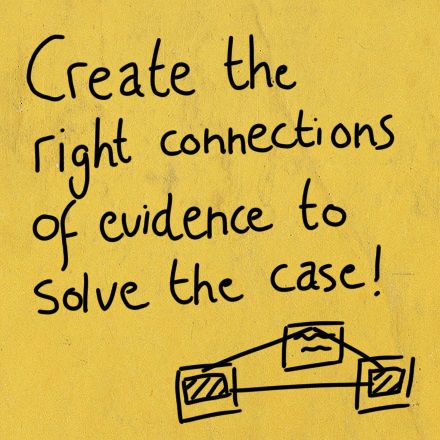 Create the
right connections
of evidence to
solve the case!